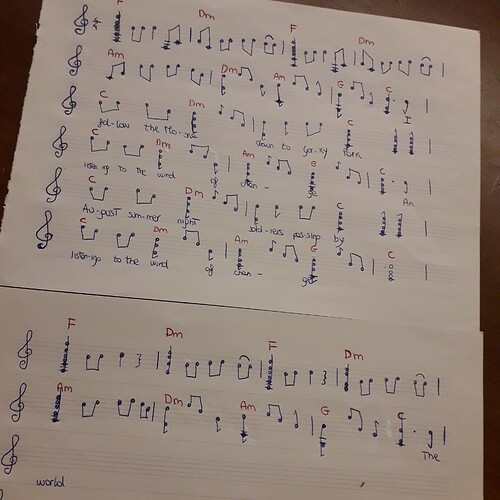 F Dm F Dm
Am Dm Am G C
I
C Dm C
fol-low the Mo-skva down to Gor-ky Park
C Dm Am G C
listen-ing to the wind of chan - ge An
C Dm C
Au-gust sum-mer night sold-iers pas-sing by
C Dm Am G C
listen-ing to the wind of chan - ge
F Dm F Dm
Am Dm Am G C
The
world